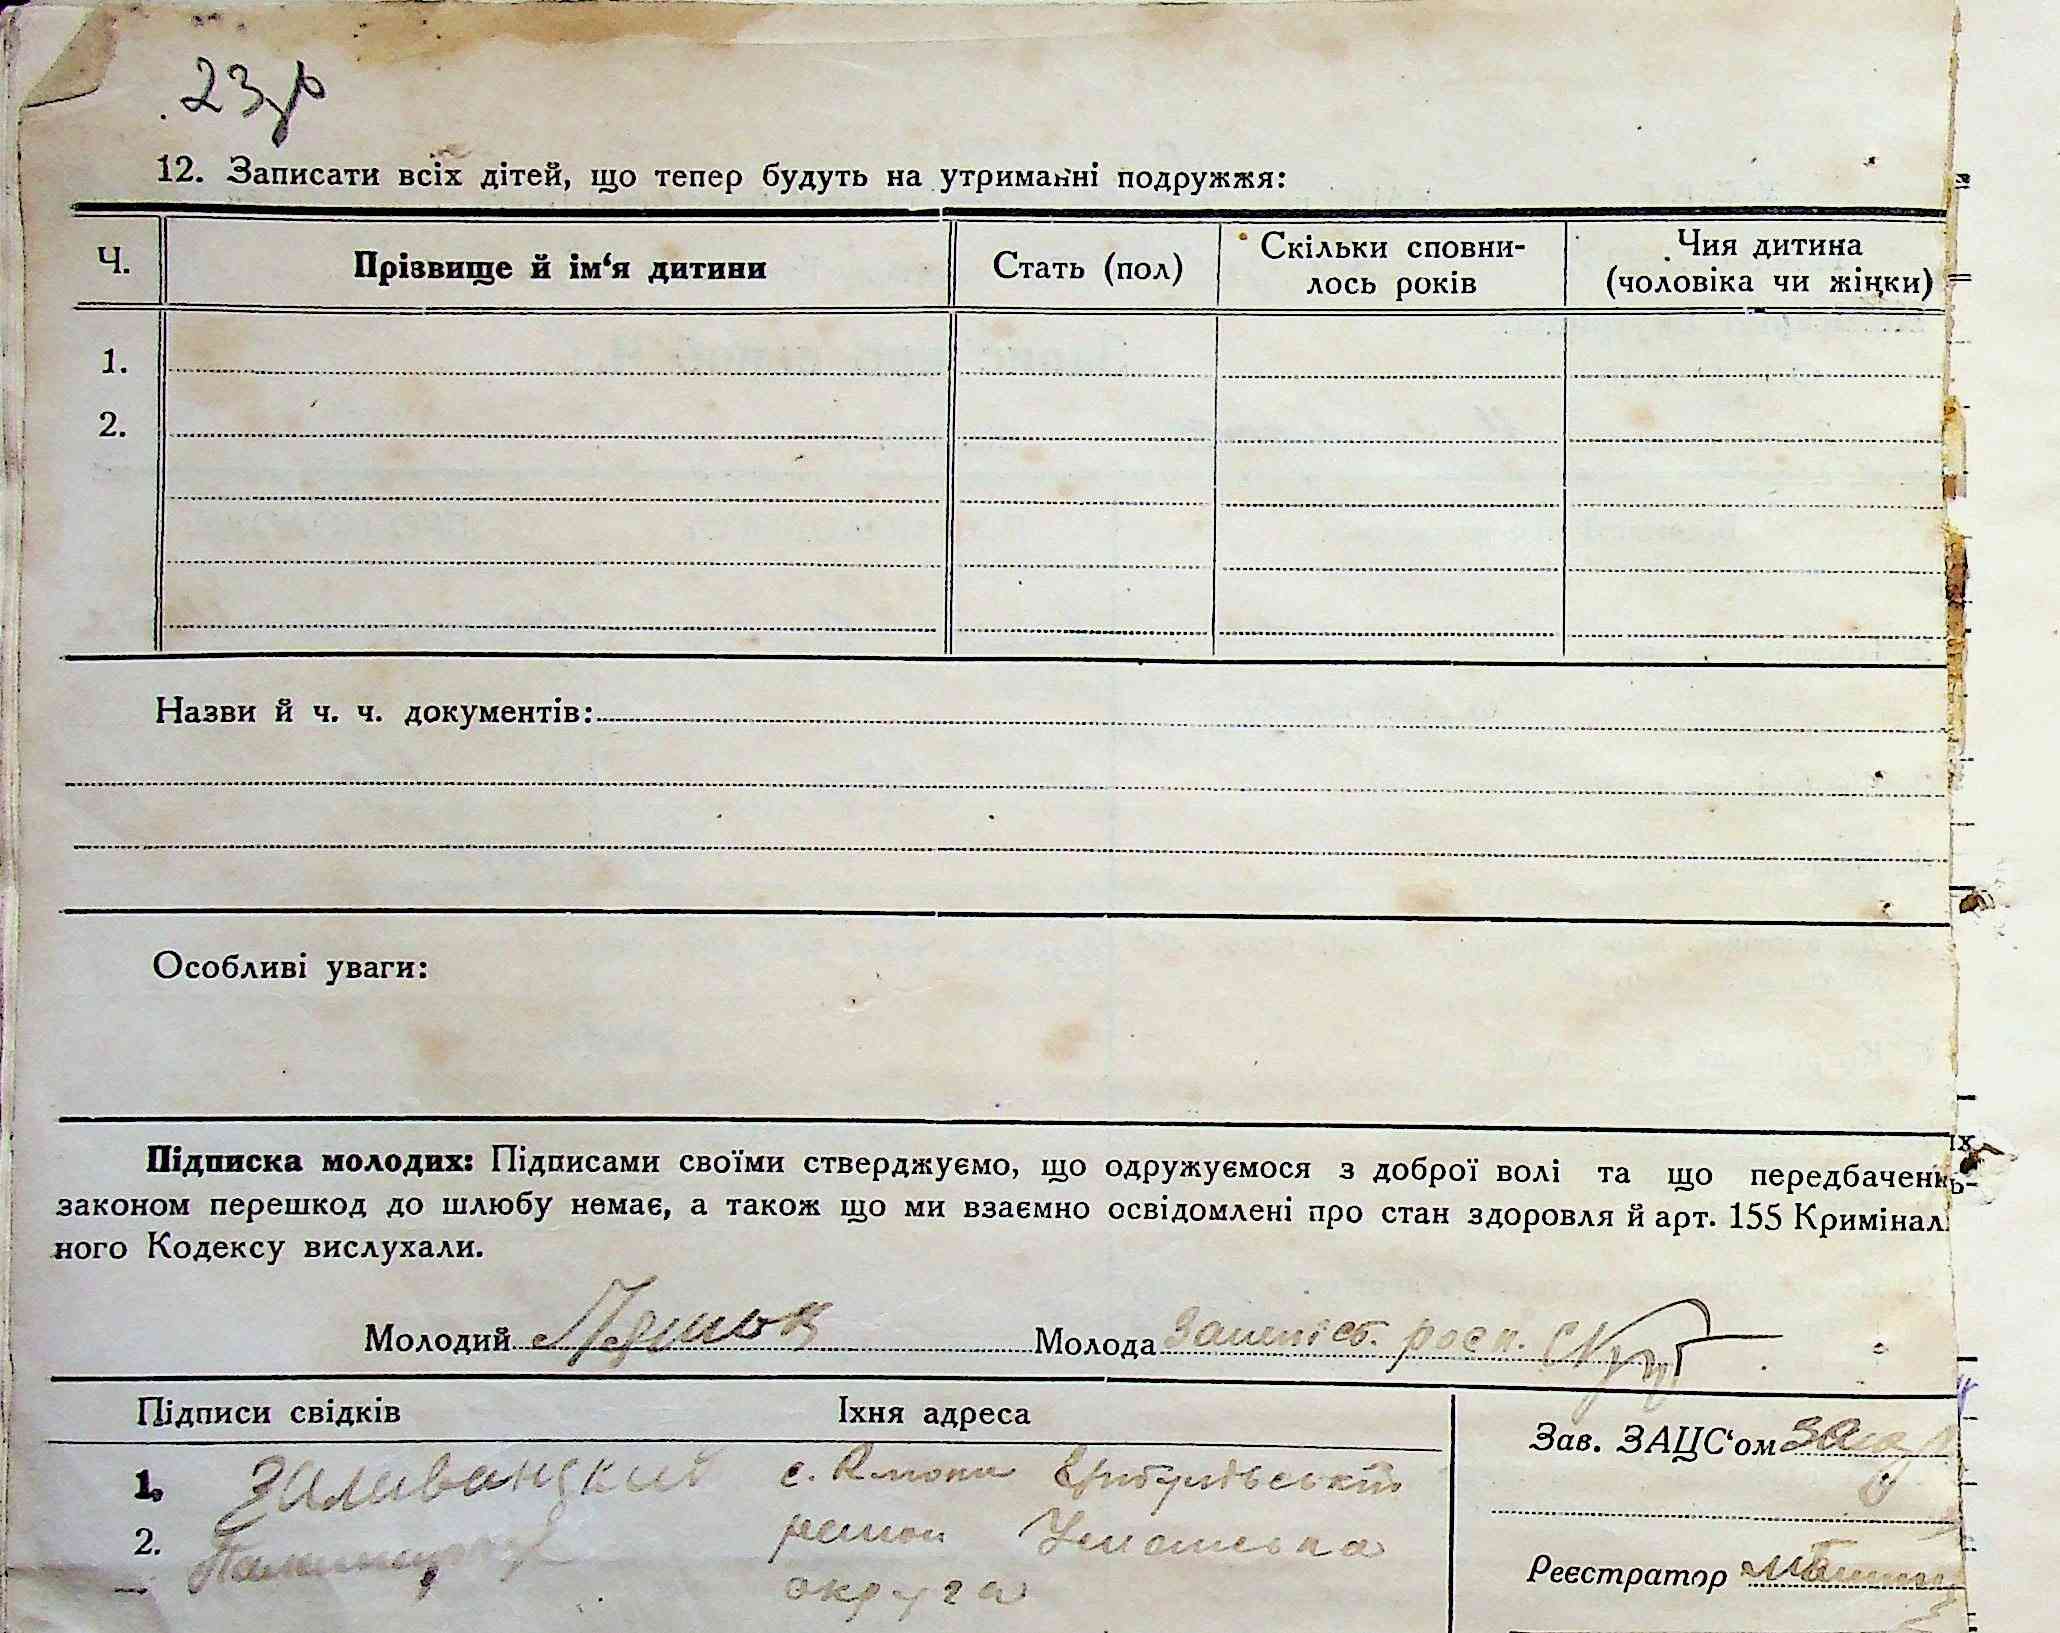 12. Записати всіх дітей, що тепер будуть на утриманні подружжя:
Ч. Прізвище й ім‘я дитини Стать (пол) Скільки сповни- Чия дитина
лось років (чоловіка чи жінки)
1.
2.
Назви й ч. ч. документів:
Особливі уваги:
Підписка молодих: Підписами своїми стверджуємо, що одружуємося з доброї волі та що передбачених
законом перешкод до шлюбу немає, а також що ми взаємно освідомлені про стан здоровля й арт. 155 Криміналь-
ного Кодексу вислухали.
Молодий Молода
Підписи свідків Їхня адреса
Зав. ЗАЦС‘ом
1. Заливанцкий с.
2. район Уманська
округа
Реєстратор